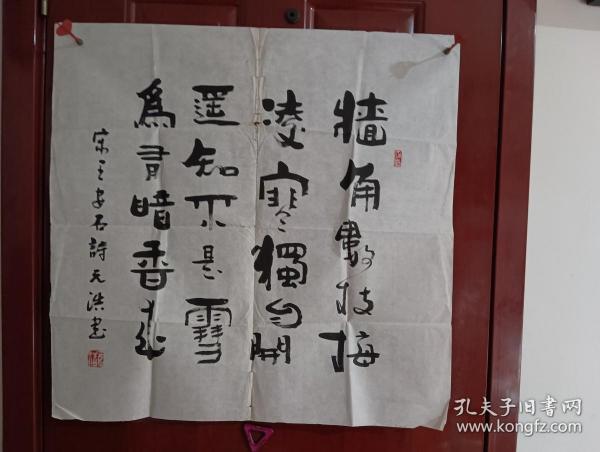 牆角數枝梅
凌寒獨自開
遥知不是雪
爲有暗香来
宋王安石詩元洪書
孔夫子旧书网
www.kongfz.com